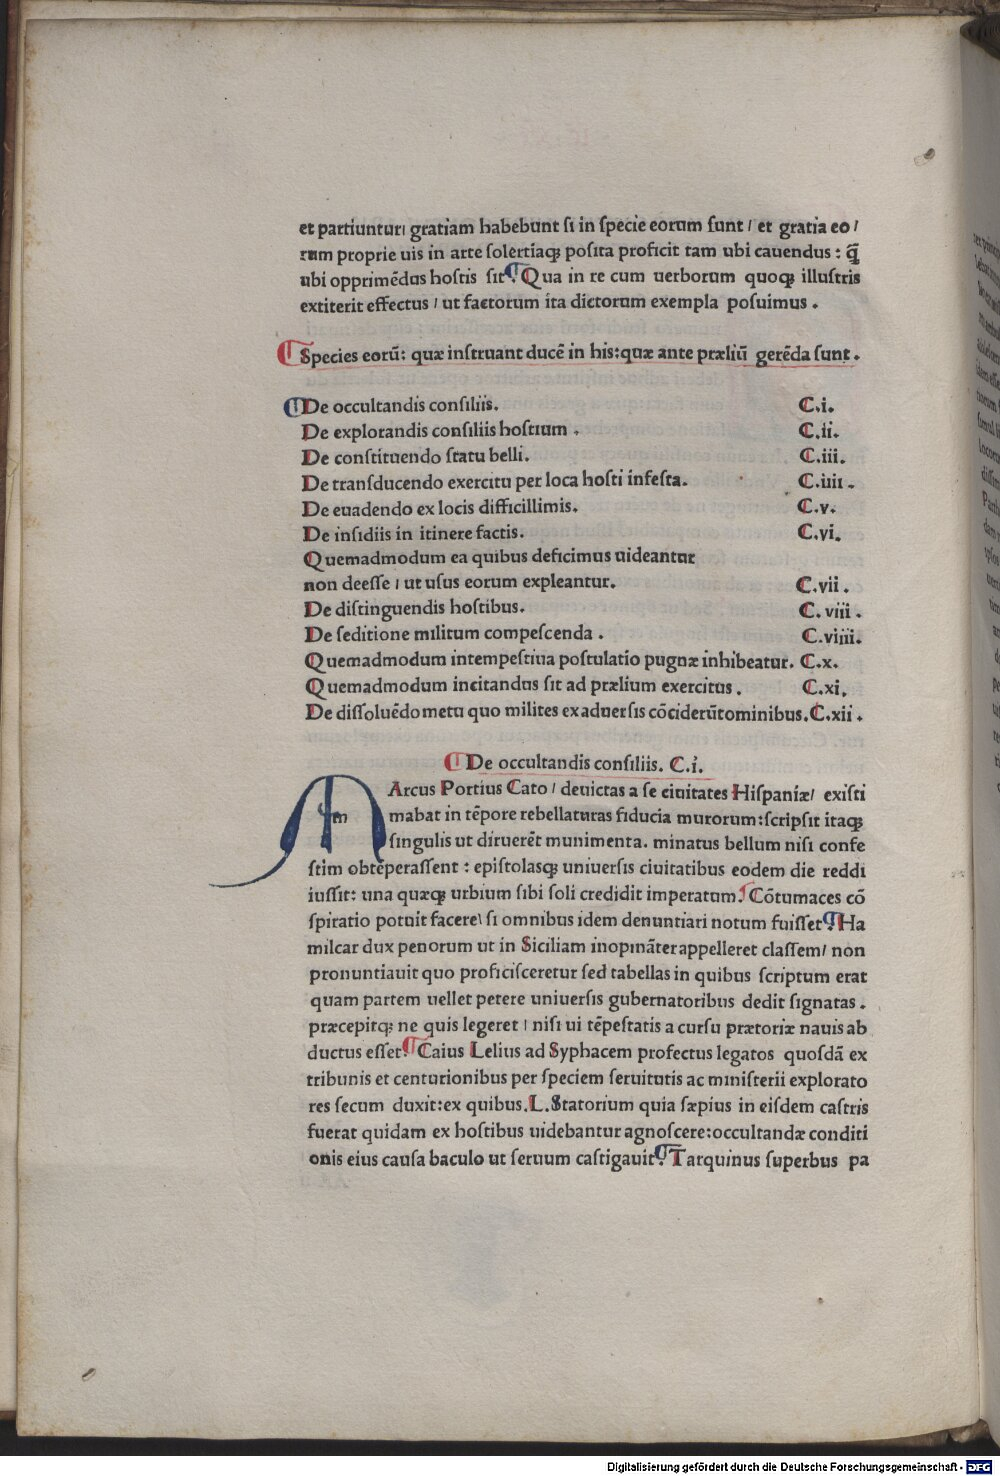 et partiuntur gratiam habebunt ſi in ſpecie eorum ſunt / et gratia eo /
rum proprie uis in arte ſolertiaqꝫ poſita proficit tam ubi cauendus : q̃
ubi opprimēdus hoſtis ſit. Qua in re cum uerborum quoqꝫ illuſtris
extiterit effectus / ut factorum ita dictorum exempla poſuimus .
Species eorū: quæ inſtruant ducē in his: quæ ante præliū gerēda ſunt .
De occultandis conſiliis. C.i.
De explorandis conſiliis hoſtium . C.ii.
De conſtituendo ſtatu belli. C.iii.
De tranſducendo exercitu per loca hoſti infeſta. C.iiii .
De euadendo ex locis difficillimis. C.v.
De inſidiis in itinere factis. C.vi.
Quemadmodum ea quibus deficimus uideantur
non deeſſe / ut uſus eorum expleantur. C.vii .
De diſtinguendis hoſtibus. C. viii .
De ſeditione militum compeſcenda . C.viiii.
Quemadmodum intempeſtiua poſtulatio pugnæ inhibeatur. C.x.
Quemadmodum incitandus ſit ad prælium exercitus . C.xi.
De diſſoluēdo metu quo milites ex aduerſis cōciderūt ominibus. C.xii .
De occultandis conſiliis. C.i.
MArcus Portius Cato / deuictas a ſe ciuitates Hiſpaniæ / exiſti
mabat in tēpore rebellaturas fiducia murorum: ſcripſit itaqꝫ
ſingulis ut diruerēt munimenta. minatus bellum niſi confe
ſtim obtēperaſſent : epiſtolasqꝫ uniuerſis ciuitatibus eodem die reddi
iuſſit: una quæqꝫ urbium ſibi ſoli credidit imperatum. Cōtumaces cō
ſpiratio potuit facere / ſi omnibus idem denuntiari notum fuiſſet. Ha
milcar dux penorum ut in Siciliam inopināter appelleret claſſem / non
pronuntiauit quo proficiſceretur ſed tabellas in quibus ſcriptum erat
quam partem uellet petere uniuerſis gubernatoribus dedit ſignatas .
præcepitqꝫ ne quis legeret / niſi ui tēpeſtatis a curſu prætoriæ nauis ab
ductus eſſet. Caius Lelius ad Syphacem profectus legatos quoſdā ex
tribunis et centurionibus per ſpeciem ſeruitutis ac miniſterii explorato
res ſecum duxit: ex quibus. L. Statorium quia ſæpius in eiſdem caſtris
fuerat quidam ex hoſtibus uidebantur agnoſcere: occultandæ conditi
onis eius cauſa baculo ut ſeruum caſtigauit. Tarquinus ſuperbus pa
Digitalisierung gefördert durch die Deutsche Forschungsgemeinschaft - DFG